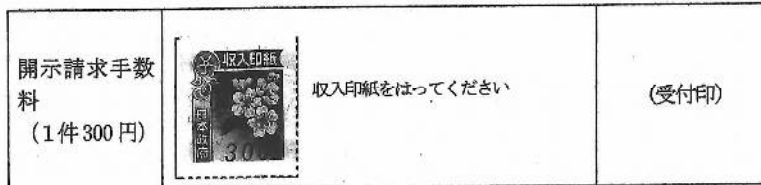 開示請求手数
料
(1件300円)
収入印紙
日本政府
収入印紙をはってください
(受付印)